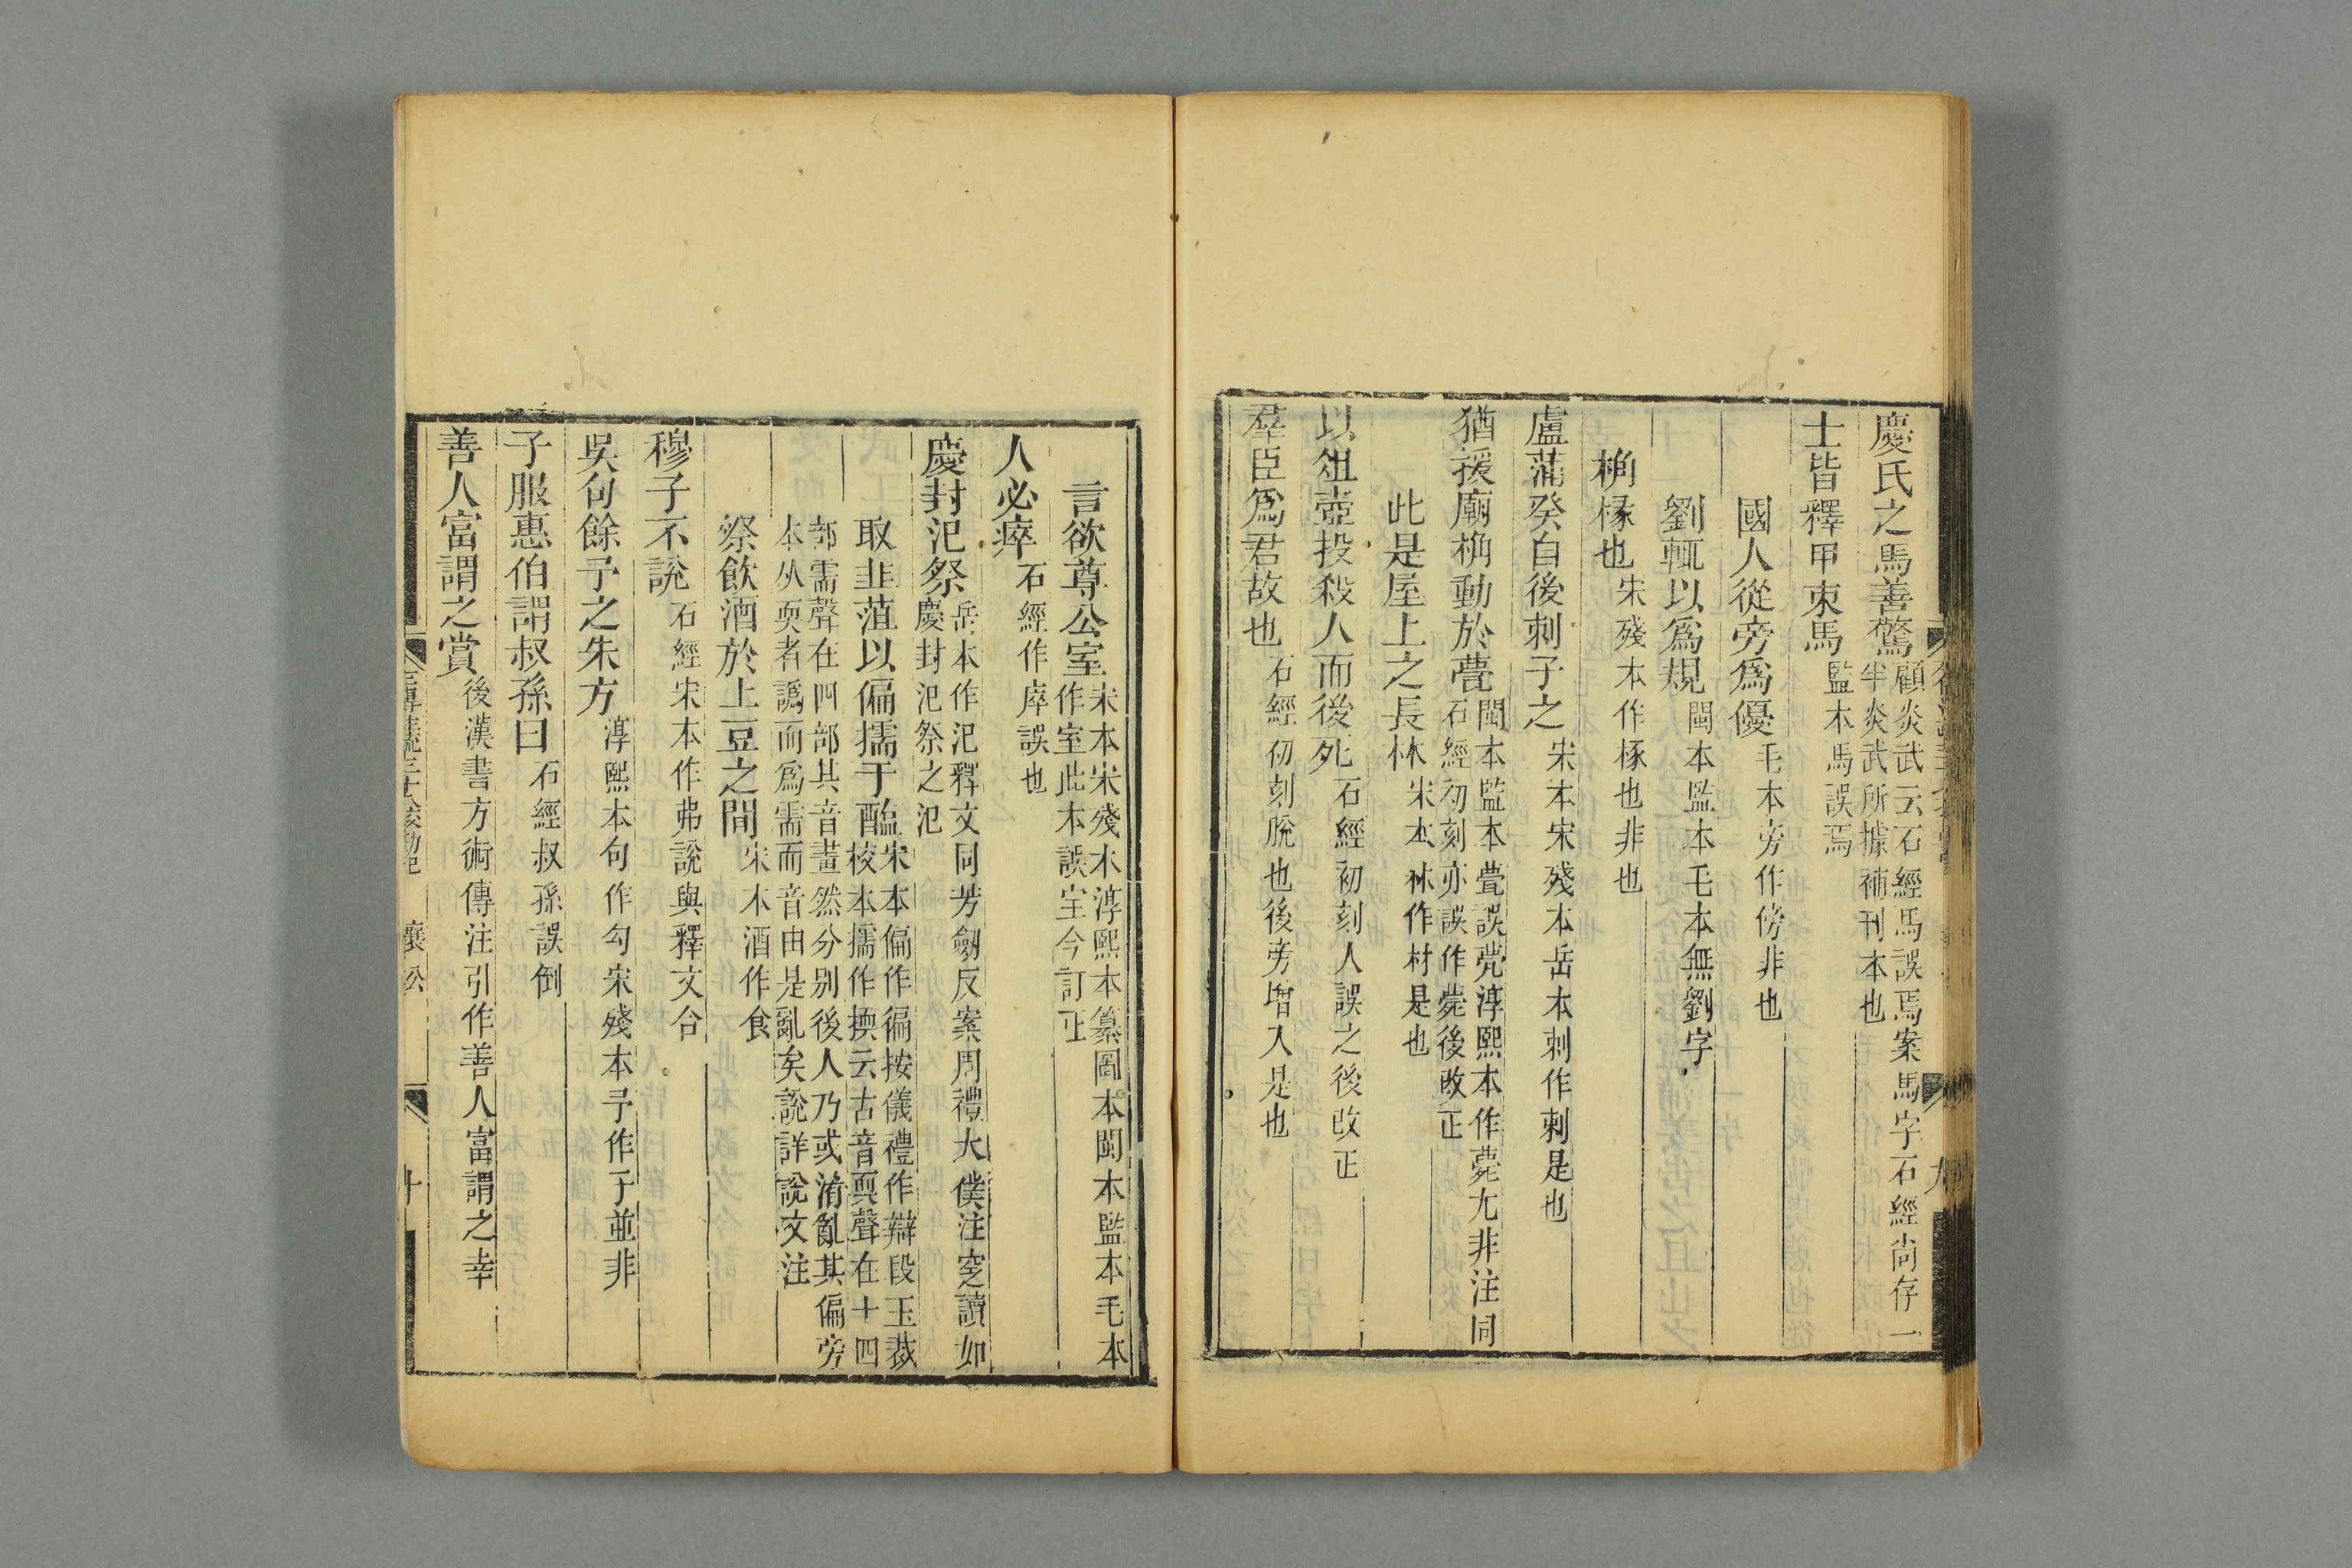 慶氏之馬善驚顧炎武云石經馬誤焉案馬字石經尚存一
半炎武所據補刊本也
士皆釋甲束馬監本馬誤焉
國人從旁爲優毛本旁作傍非也
劉輒以爲規閩本監本毛本無劉字
桷椽也宋殘本作椓也非也
盧蒲癸自後刺子之宋本宋殘本岳本刺作刾是也
猶援廟桷動於甍閩本監本甍誤甍淳熙本作薨尤非注同
石經初刻亦誤作薨後改正
此是屋上之長林宋本林作材是也
以俎壺投殺人而後死石經初刻人誤之後改正
羣臣爲君故也石經初刻脫也後旁增入是也
言欲尊公室宋本宋殘本淳熙本纂圖本閩本監本毛本
作室此本誤宝今訂正
人必瘁石經作庠誤也
慶封氾祭岳本作汜釋文同芳劒反案周禮大僕注窆讀如
慶封氾祭之氾
取韭菹以偏擩于醢宋本偏作徧按儀禮作辯段玉裁
校本擩作㨎云古音耎聲在十四
部需聲在四部其音畫然分别後人乃或淆亂其偏旁
本从耎者譌而爲需而音由是亂矣說詳說文注
祭飲酒於上豆之間宋本酒作食
穆子不說石經宋本作弗說與釋文合
吳句餘予之朱方淳熙本句作勾宋殘本予作于並非
子服惠伯謂叔孫曰石經叔孫誤倒
善人富謂之賞後漢書方術傳注引作善人富謂之幸
襄公
十